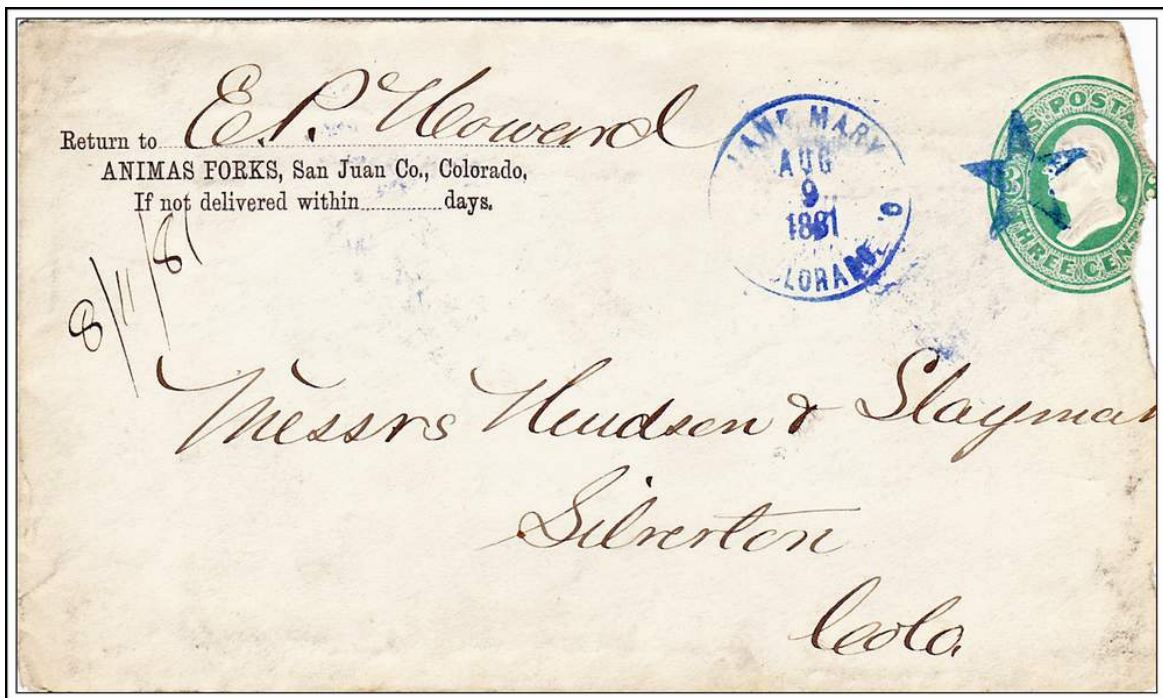 Return to E. P. Howard
ANIMAS FORKS, San Juan Co., Colorado,
If not delivered within............days.
8/11/81
MARY
AUG
9
1881
LORADO
S POSTA
3
THREE CEN
Messrs Hudson & Slayman
Silverton
Colo.